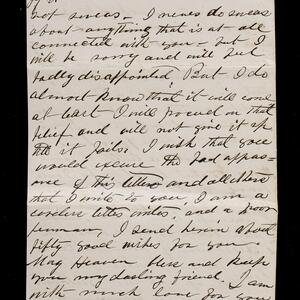 not swear. I never do swear
about anything that is at all
connected with you - but I
will be sorry and will feel
badly disappointed But I do
almost know that it will come
at last I will proceed on that
belief and will not give it up
till it fails. I wish that you
would excuse the bad appear-
ance of this letter and all others
that I write to you, I am a
careless letter writer, and a poor
penman, I send herein about
fifty good wishes for you -
May Heaven bless and keep
you my darling friend, I am
with much love for you